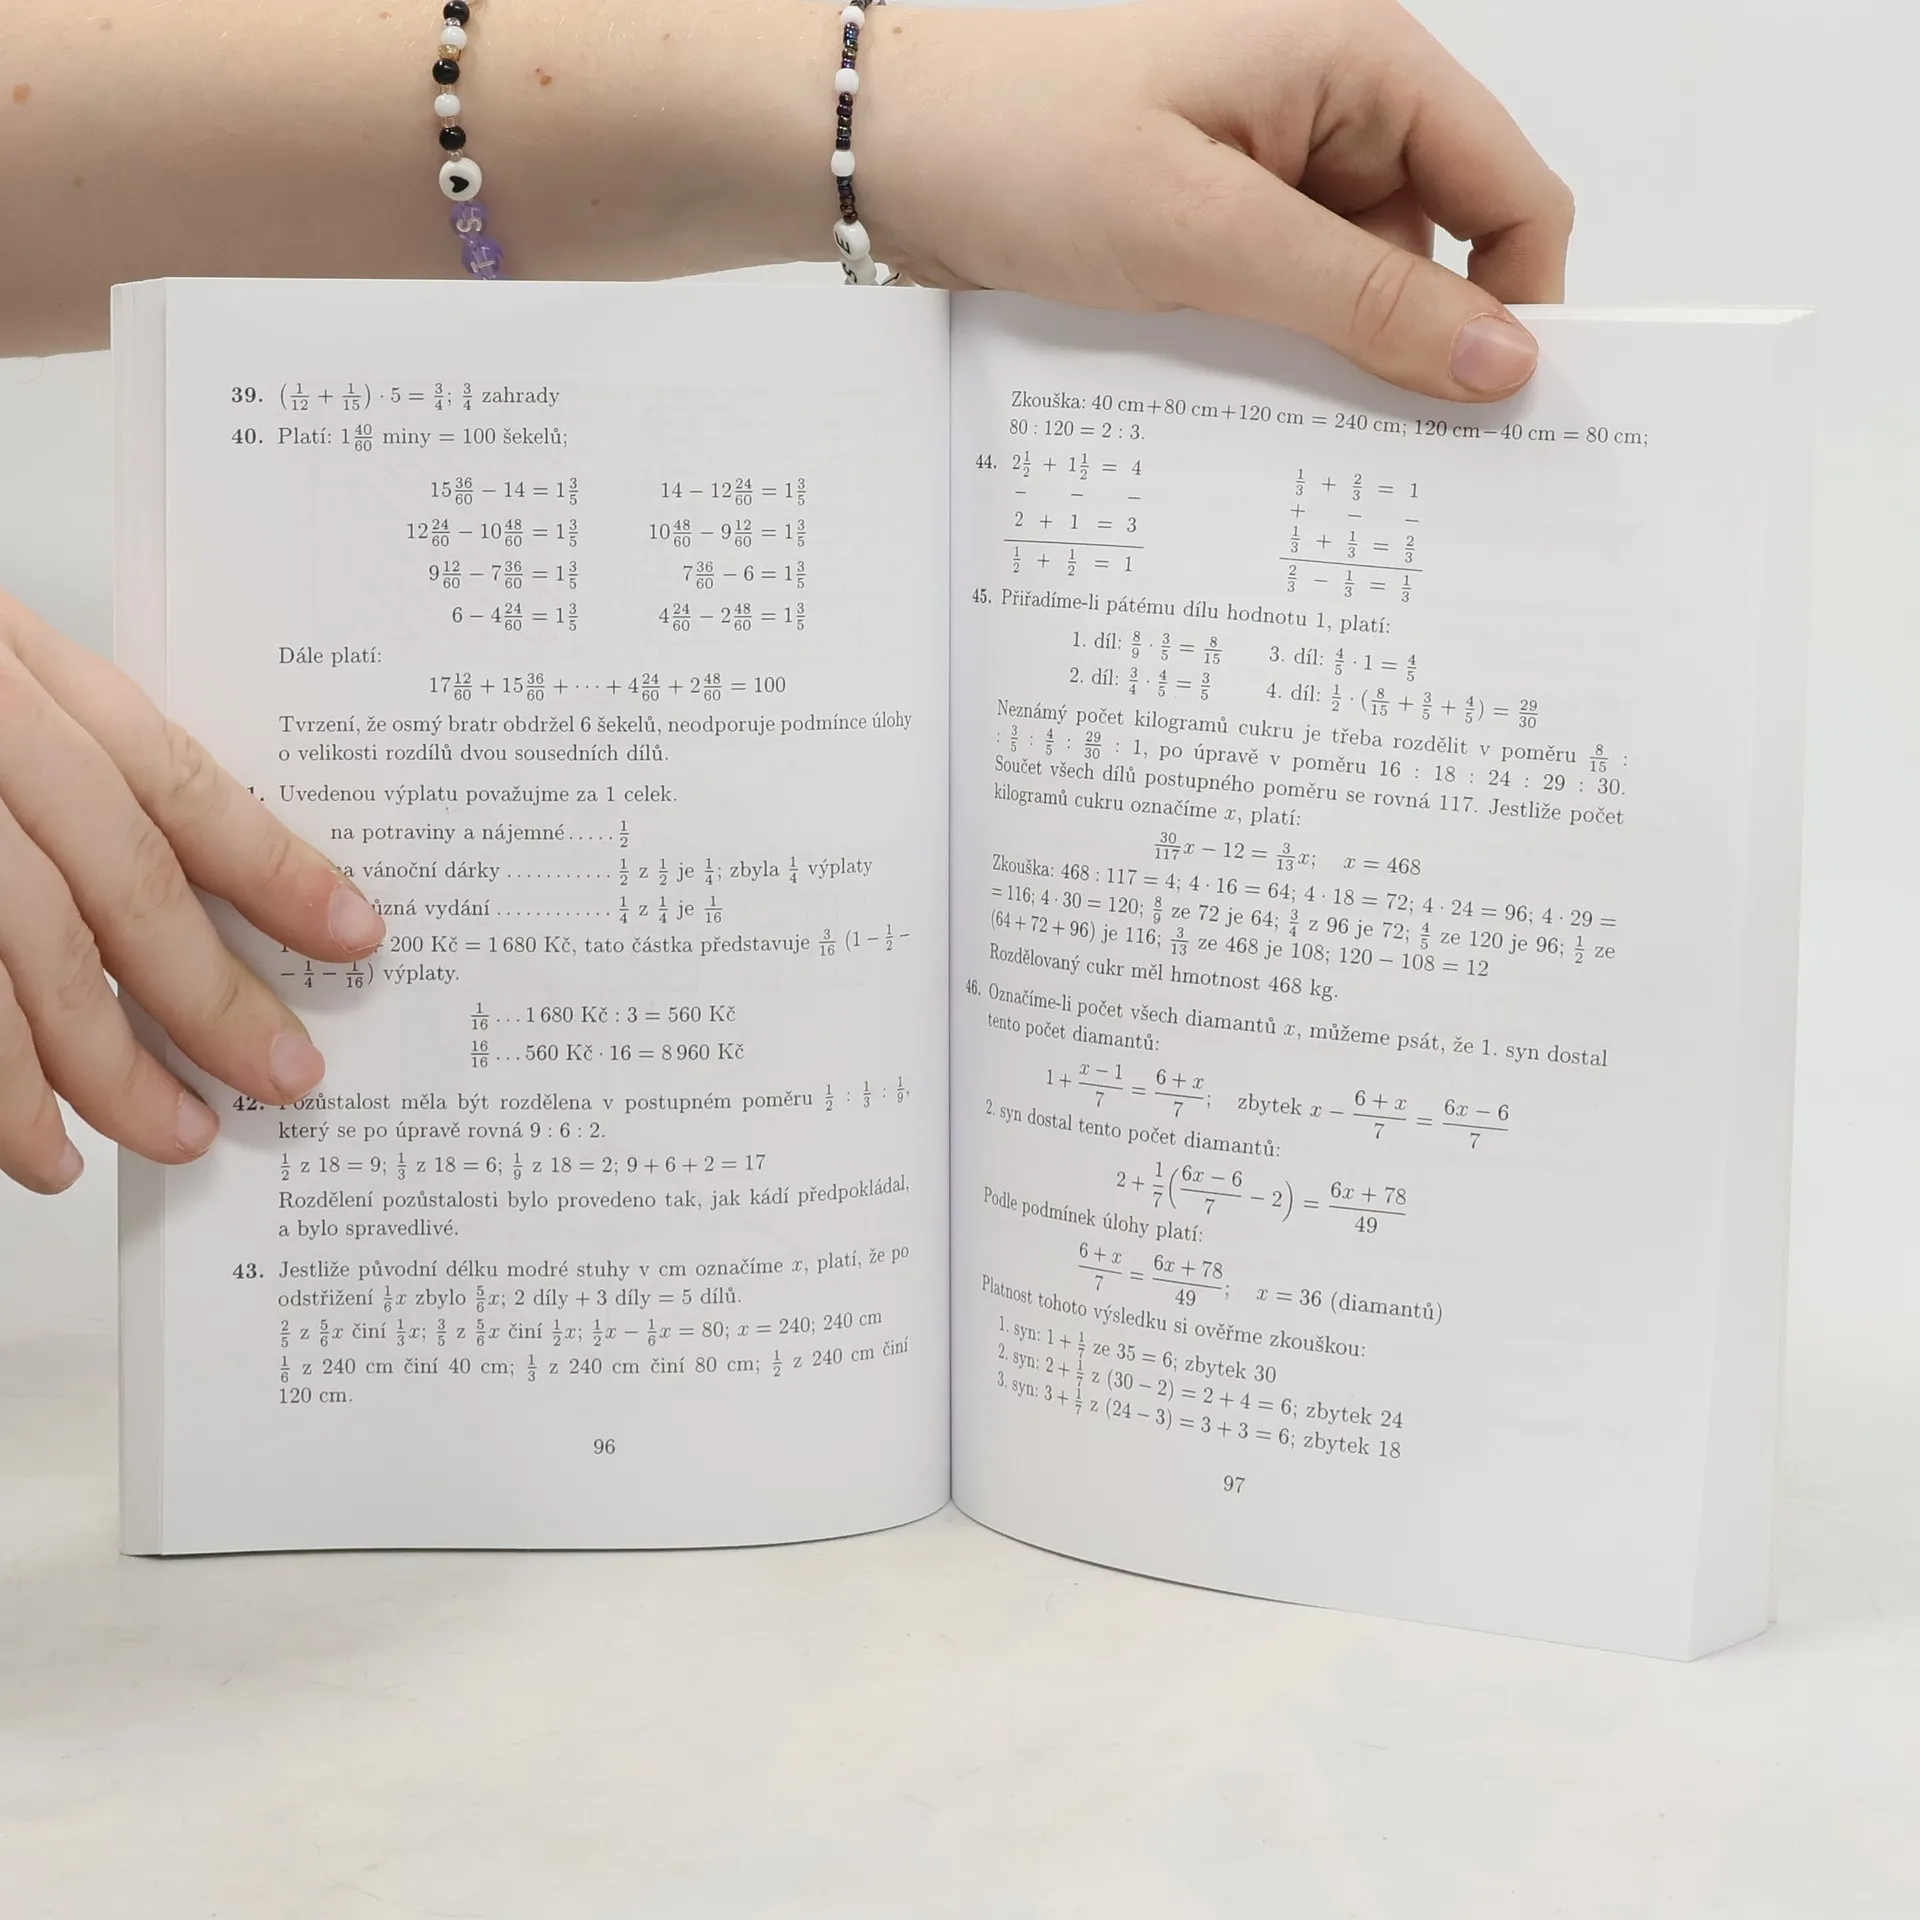 S
I
E
S
39. (1/12 + 1/15) · 5 = 3/4; 3/4 zahrady
40. Platí: 1 40/60 miny = 100 šekelů;
15 36/60 − 14 = 1 3/5 14 − 12 24/60 = 1 3/5
12 24/60 − 10 48/60 = 1 3/5 10 48/60 − 9 12/60 = 1 3/5
9 12/60 − 7 36/60 = 1 3/5 7 36/60 − 6 = 1 3/5
6 − 4 24/60 = 1 3/5 4 24/60 − 2 48/60 = 1 3/5
Dále platí:
17 12/60 + 15 36/60 + ··· + 4 24/60 + 2 48/60 = 100
Tvrzení, že osmý bratr obdržel 6 šekelů, neodporuje podmínce úlohy
o velikosti rozdílů dvou sousedních dílů.
1. Uvedenou výplatu považujme za 1 celek.
na potraviny a nájemné..... 1/2
a vánoční dárky ........... 1/2 z 1/2 je 1/4; zbyla 1/4 výplaty
ůzná vydání ............ 1/4 z 1/4 je 1/16
200 Kč = 1 680 Kč, tato částka představuje 3/16 (1 − 1/2 −
− 1/4 − 1/16) výplaty.
1/16 ... 1 680 Kč : 3 = 560 Kč
16/16 ... 560 Kč · 16 = 8 960 Kč
42. ozůstalost měla být rozdělena v postupném poměru 1/2 : 1/3 : 1/9,
který se po úpravě rovná 9 : 6 : 2.
1/2 z 18 = 9; 1/3 z 18 = 6; 1/9 z 18 = 2; 9 + 6 + 2 = 17
Rozdělení pozůstalosti bylo provedeno tak, jak kádí předpokládal,
a bylo spravedlivé.
43. Jestliže původní délku modré stuhy v cm označíme x, platí, že po
odstřižení 1/6 x zbylo 5/6 x; 2 díly + 3 díly = 5 dílů.
2/5 z 5/6 x činí 1/3 x; 3/5 z 5/6 x činí 1/2 x; 1/2 x − 1/6 x = 80; x = 240; 240 cm
1/6 z 240 cm činí 40 cm; 1/3 z 240 cm činí 80 cm; 1/2 z 240 cm činí
120 cm.
96
Zkouška: 40 cm+80 cm+120 cm = 240 cm; 120 cm−40 cm = 80 cm;
80 : 120 = 2 : 3.
44. 2 1/2 + 1 1/2 = 4 1/3 + 2/3 = 1
− − − + − −
2 + 1 = 3 1/3 + 1/3 = 2/3
1/2 + 1/2 = 1 2/3 − 1/3 = 1/3
45. Přiřadíme-li pátému dílu hodnotu 1, platí:
1. díl: 8/9 · 3/5 = 8/15 3. díl: 4/5 · 1 = 4/5
2. díl: 3/4 · 4/5 = 3/5 4. díl: 1/2 · (8/15 + 3/5 + 4/5) = 29/30
Neznámý počet kilogramů cukru je třeba rozdělit v poměru 8/15 :
: 3/5 : 4/5 : 29/30 : 1, po úpravě v poměru 16 : 18 : 24 : 29 : 30.
Součet všech dílů postupného poměru se rovná 117. Jestliže počet
kilogramů cukru označíme x, platí:
30/117 x − 12 = 3/13 x; x = 468
Zkouška: 468 : 117 = 4; 4 · 16 = 64; 4 · 18 = 72; 4 · 24 = 96; 4 · 29 =
= 116; 4 · 30 = 120; 8/9 ze 72 je 64; 3/4 z 96 je 72; 4/5 ze 120 je 96; 1/2 ze
(64 + 72 + 96) je 116; 3/13 ze 468 je 108; 120 − 108 = 12
Rozdělovaný cukr měl hmotnost 468 kg.
46. Označíme-li počet všech diamantů x, můžeme psát, že 1. syn dostal
tento počet diamantů:
1 + (x − 1)/7 = (6 + x)/7; zbytek x − (6 + x)/7 = (6x − 6)/7
2. syn dostal tento počet diamantů:
2 + 1/7 ((6x − 6)/7 − 2) = (6x + 78)/49
Podle podmínek úlohy platí:
(6 + x)/7 = (6x + 78)/49; x = 36 (diamantů)
Platnost tohoto výsledku si ověřme zkouškou:
1. syn: 1 + 1/7 ze 35 = 6; zbytek 30
2. syn: 2 + 1/7 z (30 − 2) = 2 + 4 = 6; zbytek 24
3. syn: 3 + 1/7 z (24 − 3) = 3 + 3 = 6; zbytek 18
97